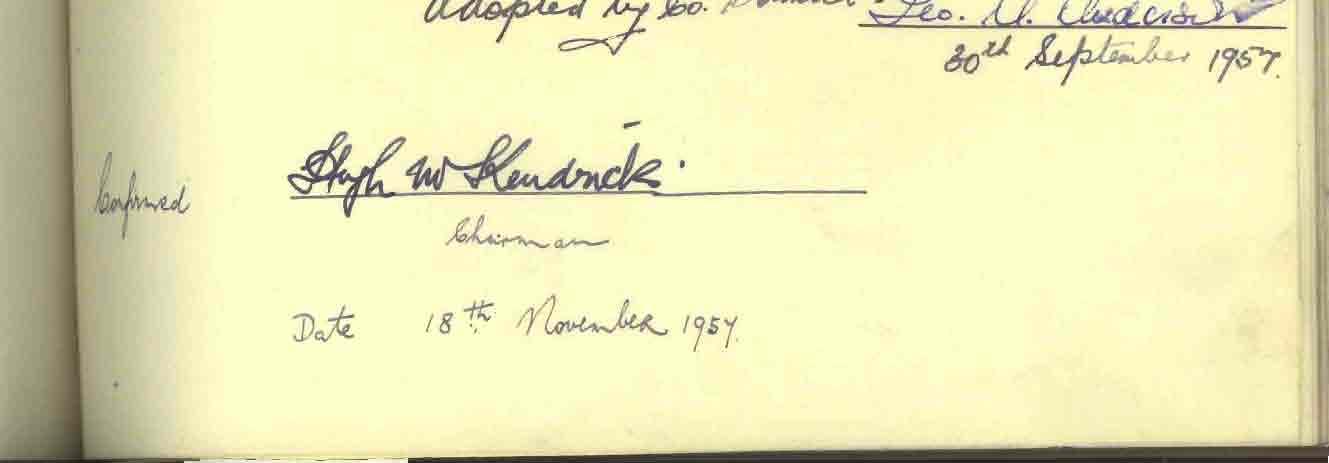 adopted by Co. Geo. A. Anderson
30th September 1957.
Confirmed Hugh W Kendrick
Chairman
Date 18th November 1957.